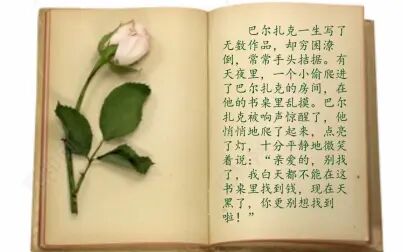 巴尔扎克一生写了
无数作品，却穷困潦
倒，常常手头拮据。有
天夜里，一个小偷爬进
了巴尔扎克的房间，在
他的书桌里乱摸。巴尔
扎克被响声惊醒了，他
悄悄地爬了起来，点亮
了灯，十分平静地微笑
着说：“亲爱的，别找
了，我白天都不能在这
书桌里找到钱，现在天
黑了，你更别想找到
啦！”